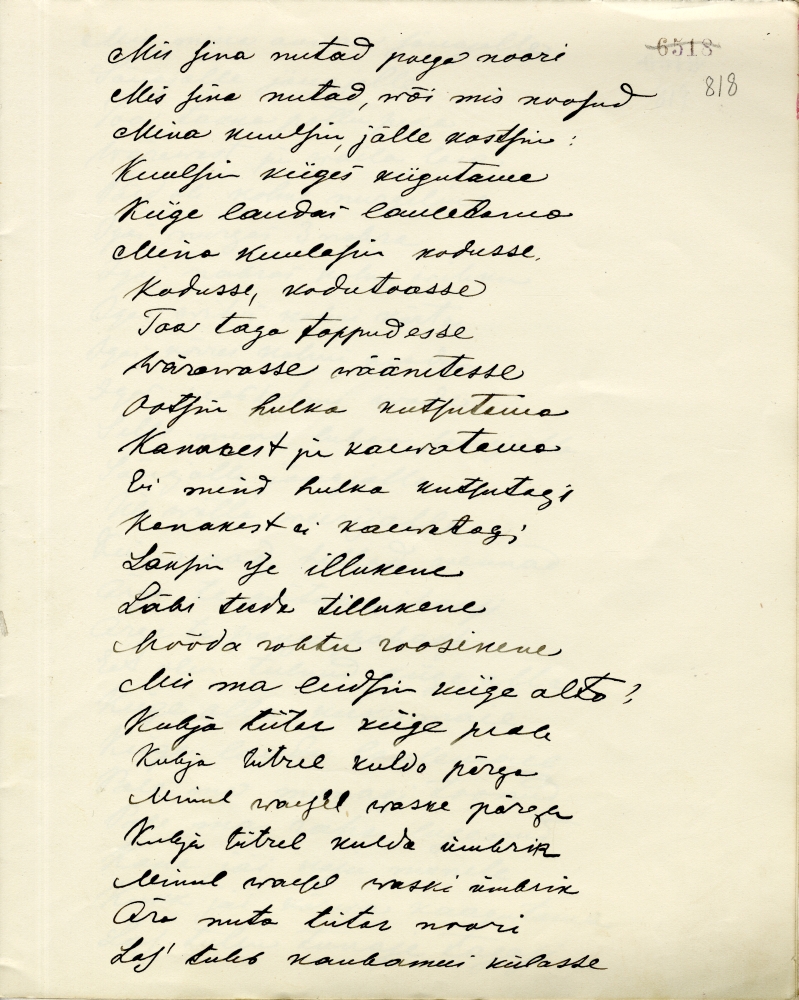 6518
818
Mis sina nutad poega noori
Mis sina nutad, wõi mis noosud
Mina kuulsin, jälle kostsin:
Kuulsin kiiges kiigutama
Kiige laudas lauletama
Mina kuulasin kodusse,
Kodusse, kodutoasse
Toa taga toppudesse
Wärawasse wäänitesse
Ootsin hulka kutsutama
Kanakest ju kaewatama
Ei mind hulka kutsutagi
Kanakest ei kaewatagi
Läksin ise illukene
Läbi teeda tillukene
Mööda rohtu roosikene
Mis ma leidsin kiige alta?
Kubja tütar kiige peale
Kubja tütrel kulda pärga
Minul waesel waske pärga
Kubja tütrel kulda ümbrik
Minul waesel waski ümbrik
Ära nuta tütar noori
Las' tuleb kaubamees külasse